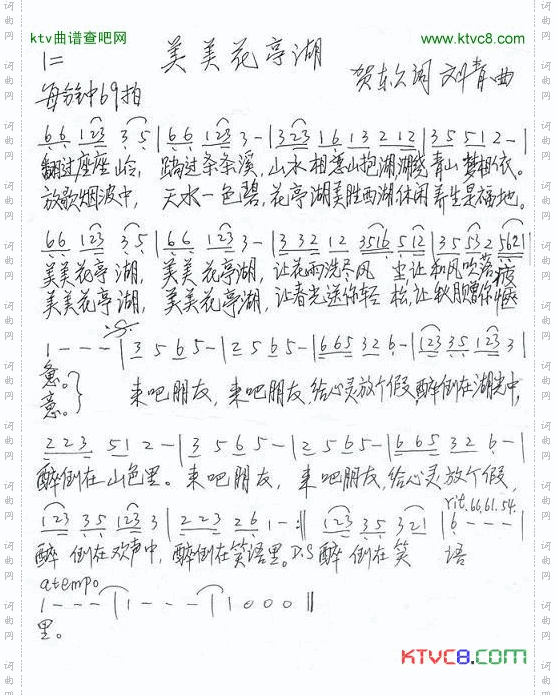 ktv曲谱查吧网
www.ktvc8.com
美美花亭湖
1=
贺东久词 刘青曲
每分钟69拍
6 6 1 2 3 3 5 | 6 6 1 2 3 3 - | 3 2 3 1 6 1 3 2 1 2 | 3 5 5 1 2 - |
翻过座座岭, 踏过条条溪, 山水相恋山抱湖湖绕青山梦相依。
放歌烟波中, 天水一色碧, 花亭湖美胜西湖休闲养生是福地。
6 6 1 2 3 3 5 | 6 6 1 2 3 3 - | 3 3 2 1 2 3 5 1 6 5 1 2 | 3 5 5 3 2 5 6 2 1 |
美美花亭湖, 美美花亭湖, 让花雨洗尽风尘让和风吹落疲
美美花亭湖, 美美花亭湖, 让春光送你轻松, 让秋月赠你惬
1 - - - | 3 5 6 5 - | 2 5 6 5 - | 6 6 5 3 2 6 - | 1 2 3 3 5 1 2 3 3 |
惫。
意。
来吧朋友, 来吧朋友, 给心灵放个假, 醉倒在湖光中,
2 2 3 5 1 2 - | 3 5 6 5 - | 2 5 6 5 - | 6 6 5 3 2 6 - |
醉倒在山色里。来吧朋友, 来吧朋友, 给心灵放个假,
rit. 66. 61. 54.
1 2 3 3 5 1 2 3 3 | 2 2 3 2 6 1 - :‖ 1 2 3 3 5 3 2 1 | 6 - - - - |
醉倒在欢声中, 醉倒在笑语里。D.S 醉倒在笑语
a tempo
1 - - - | 1 - - - | 1 0 0 0 ‖
里。
KTVC8.com
词曲网